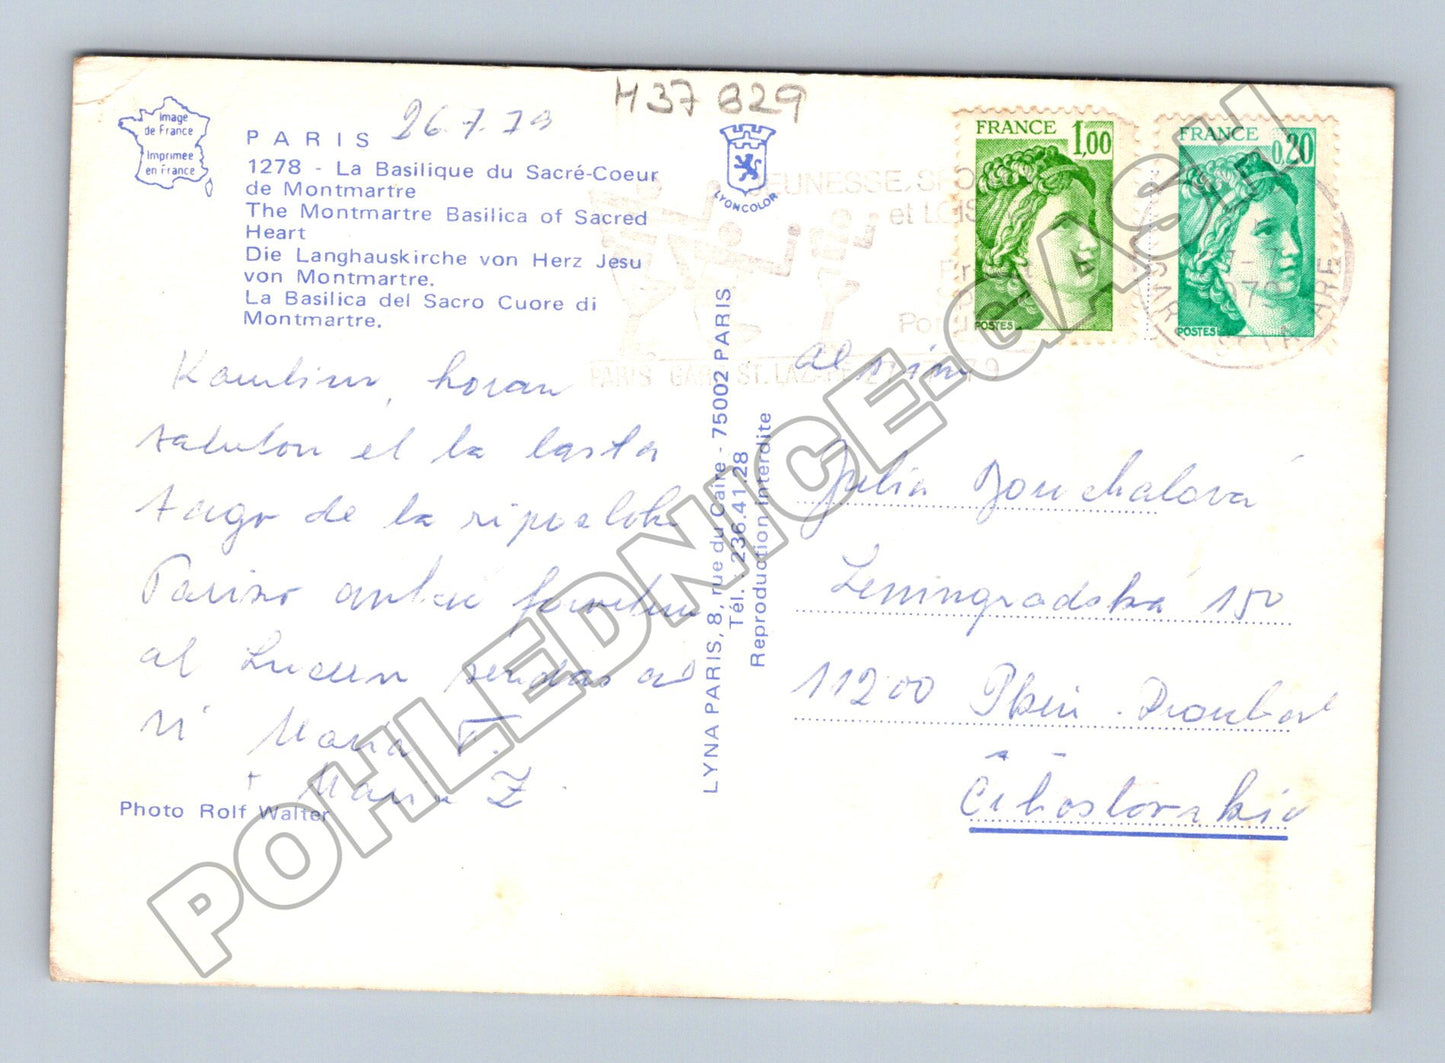 H37 829
Image
de France
Imprimée
en France
PARIS 26.7.79
1278 - La Basilique du Sacré-Coeur
de Montmartre
The Montmartre Basilica of Sacred
Heart
Die Langhauskirche von Herz Jesu
von Montmartre.
La Basilica del Sacro Cuore di
Montmartre.
LYONCOLOR
JEUNESSE, SPO
et LOIS
PARIS GARE ST. LAZARE
FRANCE
1,00
POSTES
FRANCE
0,20
POSTES
Karulinoj, koran
saluton el la lasta
tago de la ripozloko
Parizo antaŭ forveturo
al Luzern sendas al
vi Maria T.
+ Maria Z.
Photo Rolf Walter
LYNA PARIS, 8, rue du Caire - 75002 PARIS
Tél. : 236.41.28
Reproduction interdite
al
Julia Bouchalová
Leningradská 150
11200 Plzeň - Doubravka
Ĉeĥoslovakio
POHLEDNICE-GASH